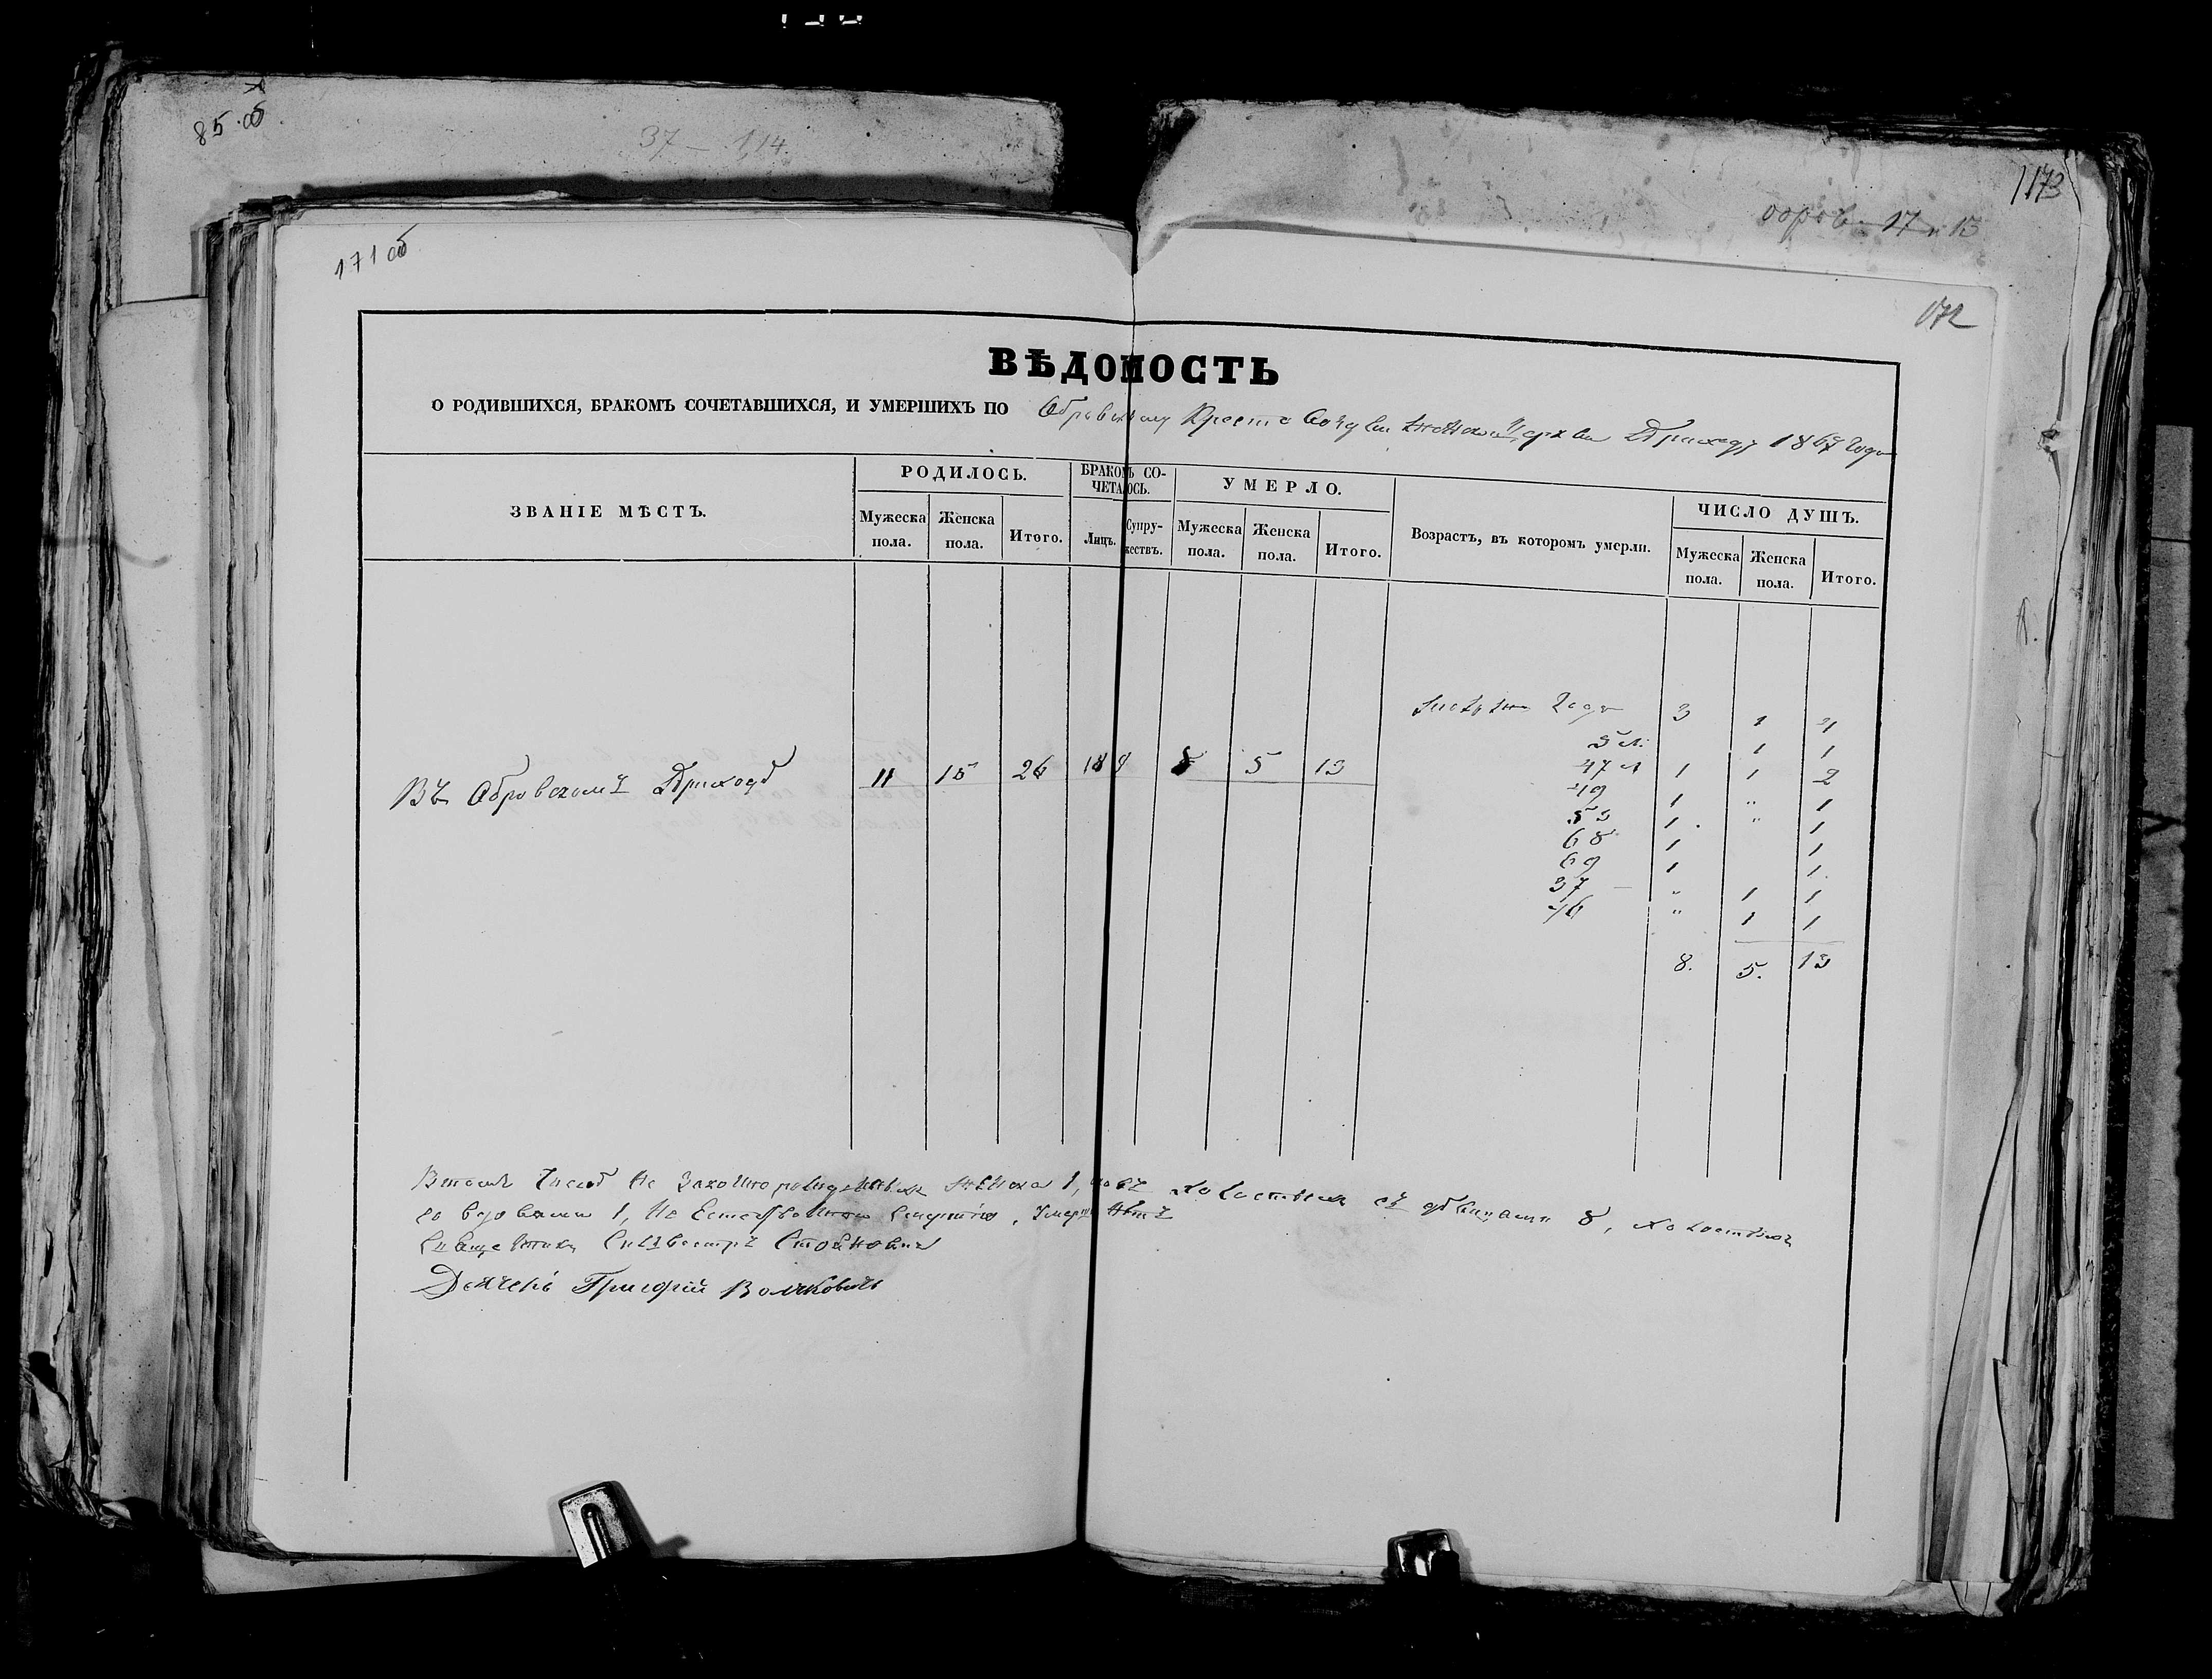 85 об
37 — 114
173
17 и 13
171 об
172
ВѢДОМОСТЬ
О РОДИВШИХСЯ, БРАКОМЪ СОЧЕТАВШИХСЯ, И УМЕРШИХЪ ПО Обровскому Кресто Приходу 1867 года
ЗВАНІЕ МѢСТЪ. РОДИЛОСЬ. БРАКОМЪ СО-ЧЕТАЛОСЬ. УМЕРЛО. Возрастъ, въ которомъ умерли. ЧИСЛО ДУШЪ.
Мужеска пола. Женска пола. Итого. Лицъ. Супру-жествъ. Мужеска пола. Женска пола. Итого. Мужеска пола. Женска пола. Итого.
года 3 1 4
5 л: 1 1
47 л 1 1 2
49 1 " 1
53 1 " 1
68 1 1
69 1 1
37 — " 1 1
46 " 1 1
8. 5. 13
Въ Обровскомъ Приходѣ 11 15 26 18 9 8 5 13
Втомъ Числѣ Не Законно 1, съ дѣвицами 8, холостыхъ
со вдовами 1, Не смертію, нѣтъ
Священникъ Сильвестръ Стоянович
Дьячекъ Григорій Волковичъ